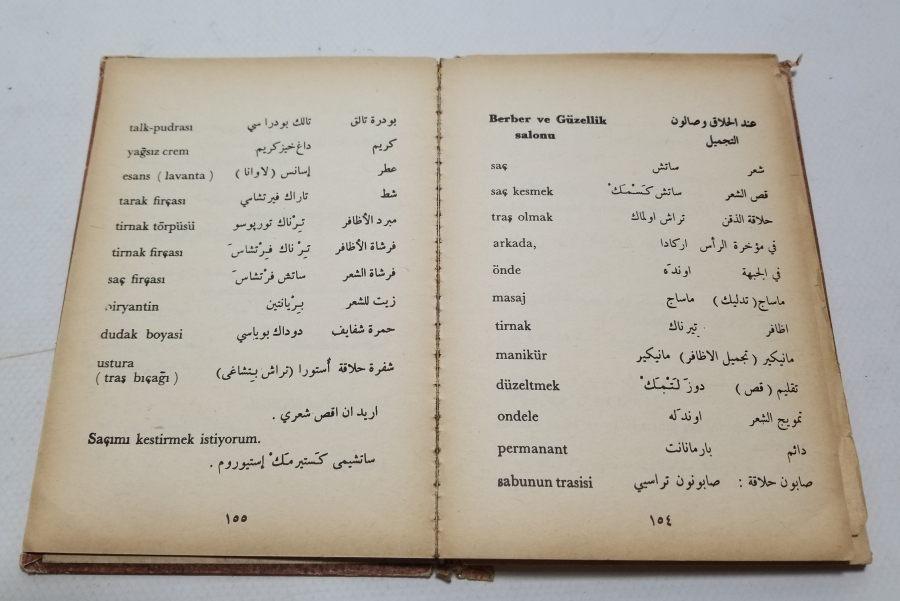 Berber ve Güzellik عند الحلاق وصالون
salonu التجميل
saç ساتش شعر
saç kesmek ساتش كَسْمَكْ قص الشعر
traş olmak تراش اولماك حلاقة الذقن
arkada, اركادا في مؤخرة الرأس
önde اوندَه في الجبهة
masaj ماساج ماساج (تدليك)
tirnak تيرناك اظافر
manikür مانيكير مانيكير (تجميل الاظافر)
düzeltmek دوزَلْتْمَكْ تقليم (قص)
ondele اوندَله تمويج الشعر
permanant بارمانانت دائم
sabunun trasisi صابونون تراسيي صابون حلاقة :
١٥٤
talk-pudrası تالك بودراسي بودرة تالق
yağsız crem داغخيزكريم كريم
esans (lavanta) إسانس (لاوانا) عطر
tarak firçası تاراك فيرتشاسي شط
tirnak törpüsü تيرْناك تورپوسو مبرد الأظافر
tirnak firçası تيرْناك فيرْتشاسَ فرشاة الأظافر
saç firçası ساتش فرْتشاسَ فرشاة الشعر
biryantin بيرْيانتين زيت للشعر
dudak boyasi دوداك بوياسي حمرة شفايف
ustura
(traş bıçağı) أُستورا (تراش بيتشاغى) شفرة حلاقة
اريد ان اقص شعري .
Saçımı kestirmek istiyorum.
ساتشيمى كَستيرمَكْ إستيوروم .
١٥٥